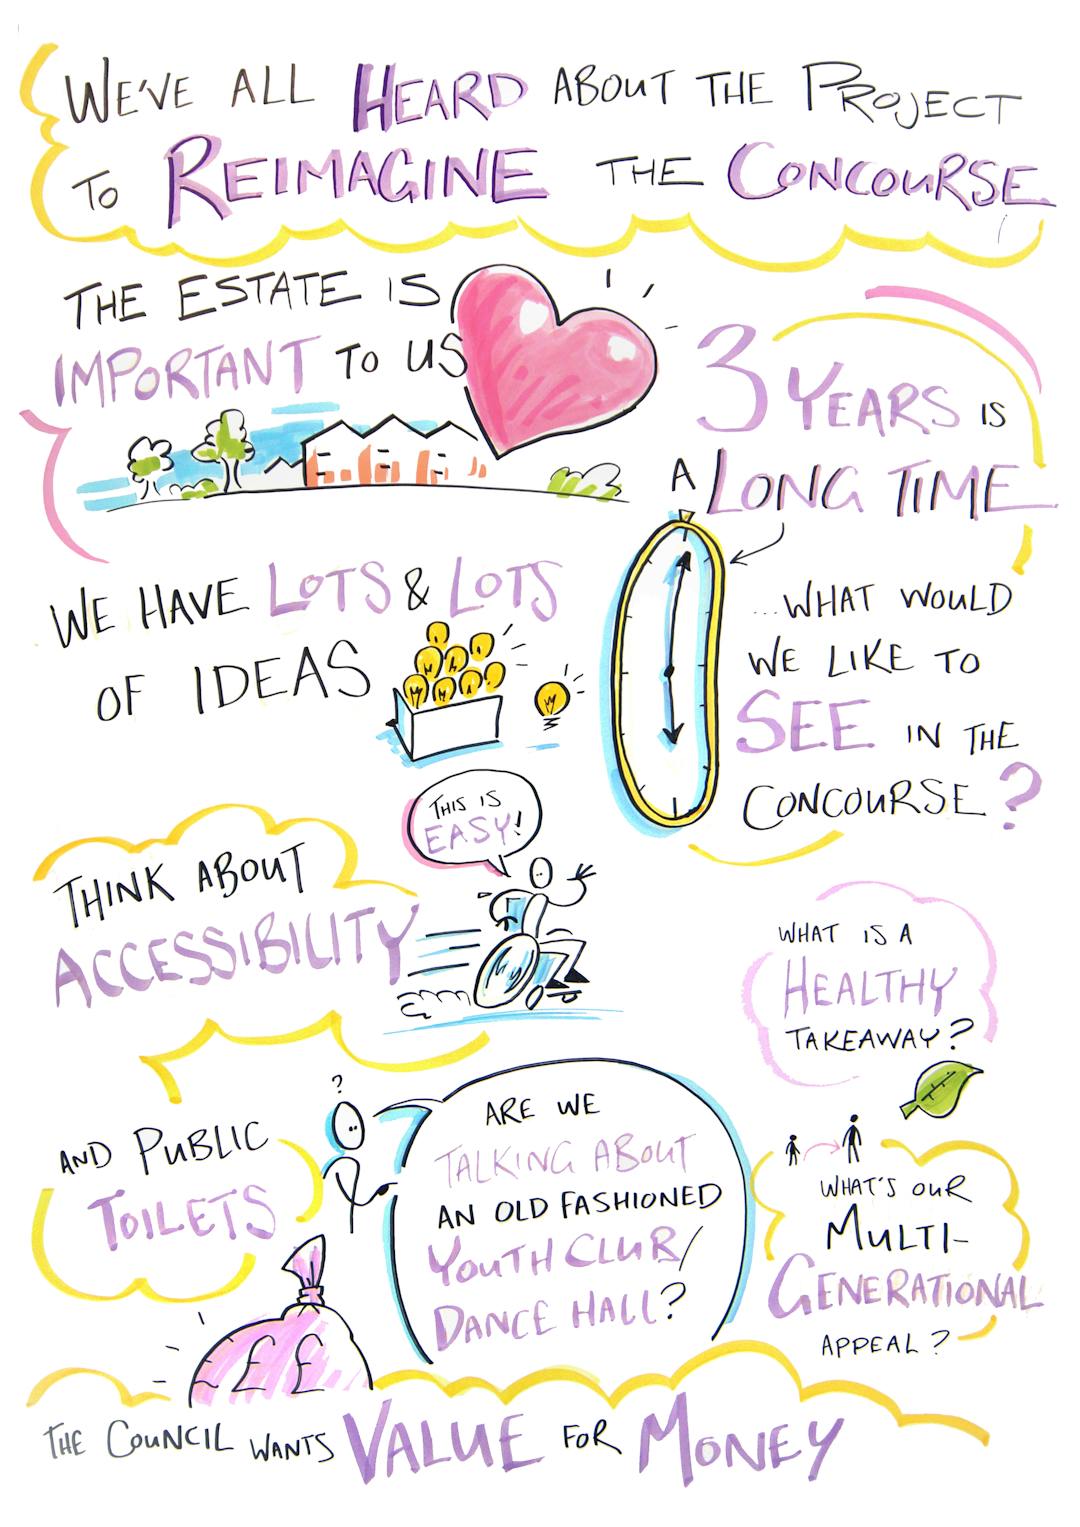 WE'VE ALL HEARD ABOUT THE PROJECT
TO REIMAGINE THE CONCOURSE
THE ESTATE IS
IMPORTANT TO US
3 YEARS IS
A LONG TIME
WE HAVE LOTS & LOTS
OF IDEAS
...WHAT WOULD
WE LIKE TO
SEE IN THE
CONCOURSE?
THIS IS
EASY!
THINK ABOUT
ACCESSIBILITY
WHAT IS A
HEALTHY
TAKEAWAY?
AND PUBLIC
TOILETS
?
ARE WE
TALKING ABOUT
AN OLD FASHIONED
YOUTH CLUB/
DANCE HALL?
WHAT'S OUR
MULTI-
GENERATIONAL
APPEAL?
£ £
THE COUNCIL WANTS VALUE FOR MONEY